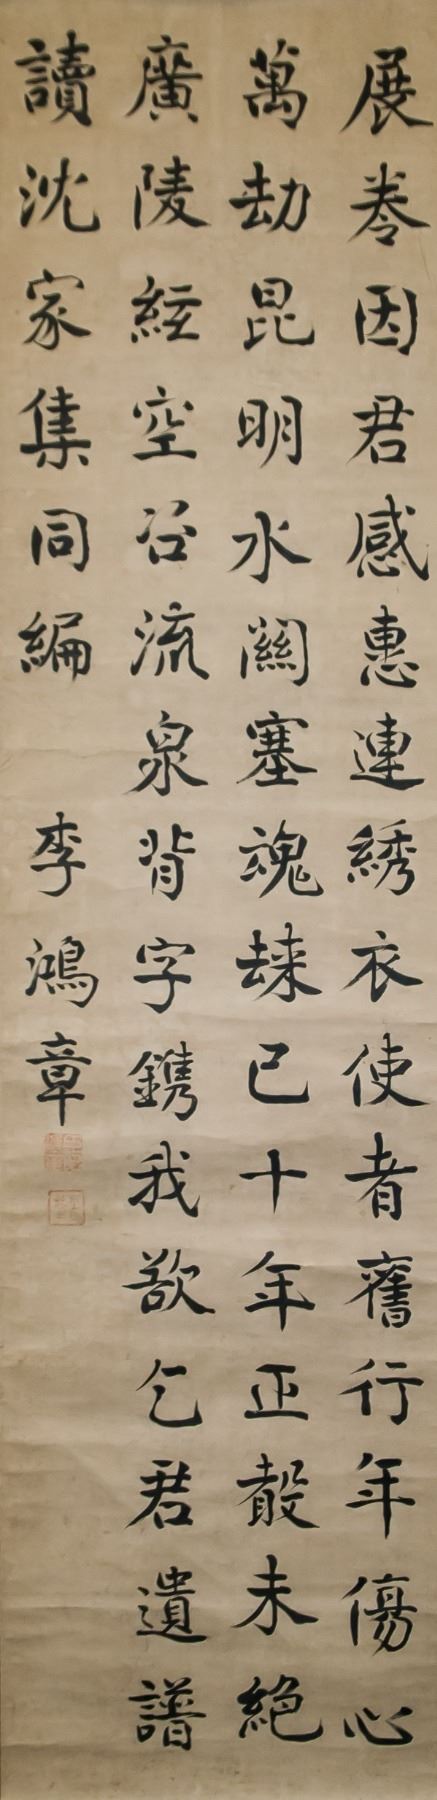 展卷因君感惠連綉衣使者舊行年傷心
萬劫昆明水關塞魂歸已十年正聲未絕
廣陵絃空谷流泉背字鐫我欲乞君遺譜
讀沈家集同編　李鴻章